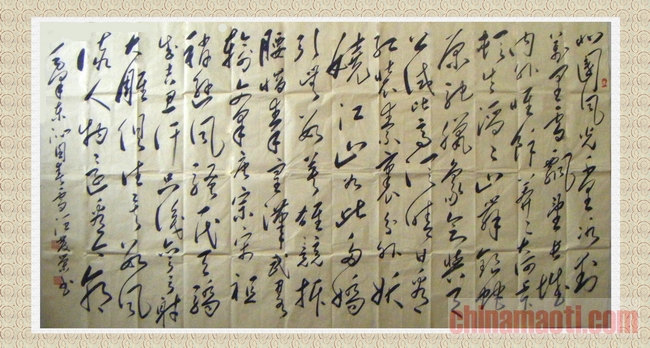 北国风光千里冰封
万里雪飘望长城
内外惟余莽莽大河上下
顿失滔滔山舞银蛇
原驰腊象欲与天
公试比高须晴日看
红装素裹分外妖
娆江山如此多娇
引无数英雄竞折
腰惜秦皇汉武略
输文采唐宗宋祖
稍逊风骚一代天骄
成吉思汗只识弯弓射
大雕俱往矣数风
流人物还看今朝
毛泽东沁园春雪 书
chinamaoti.com